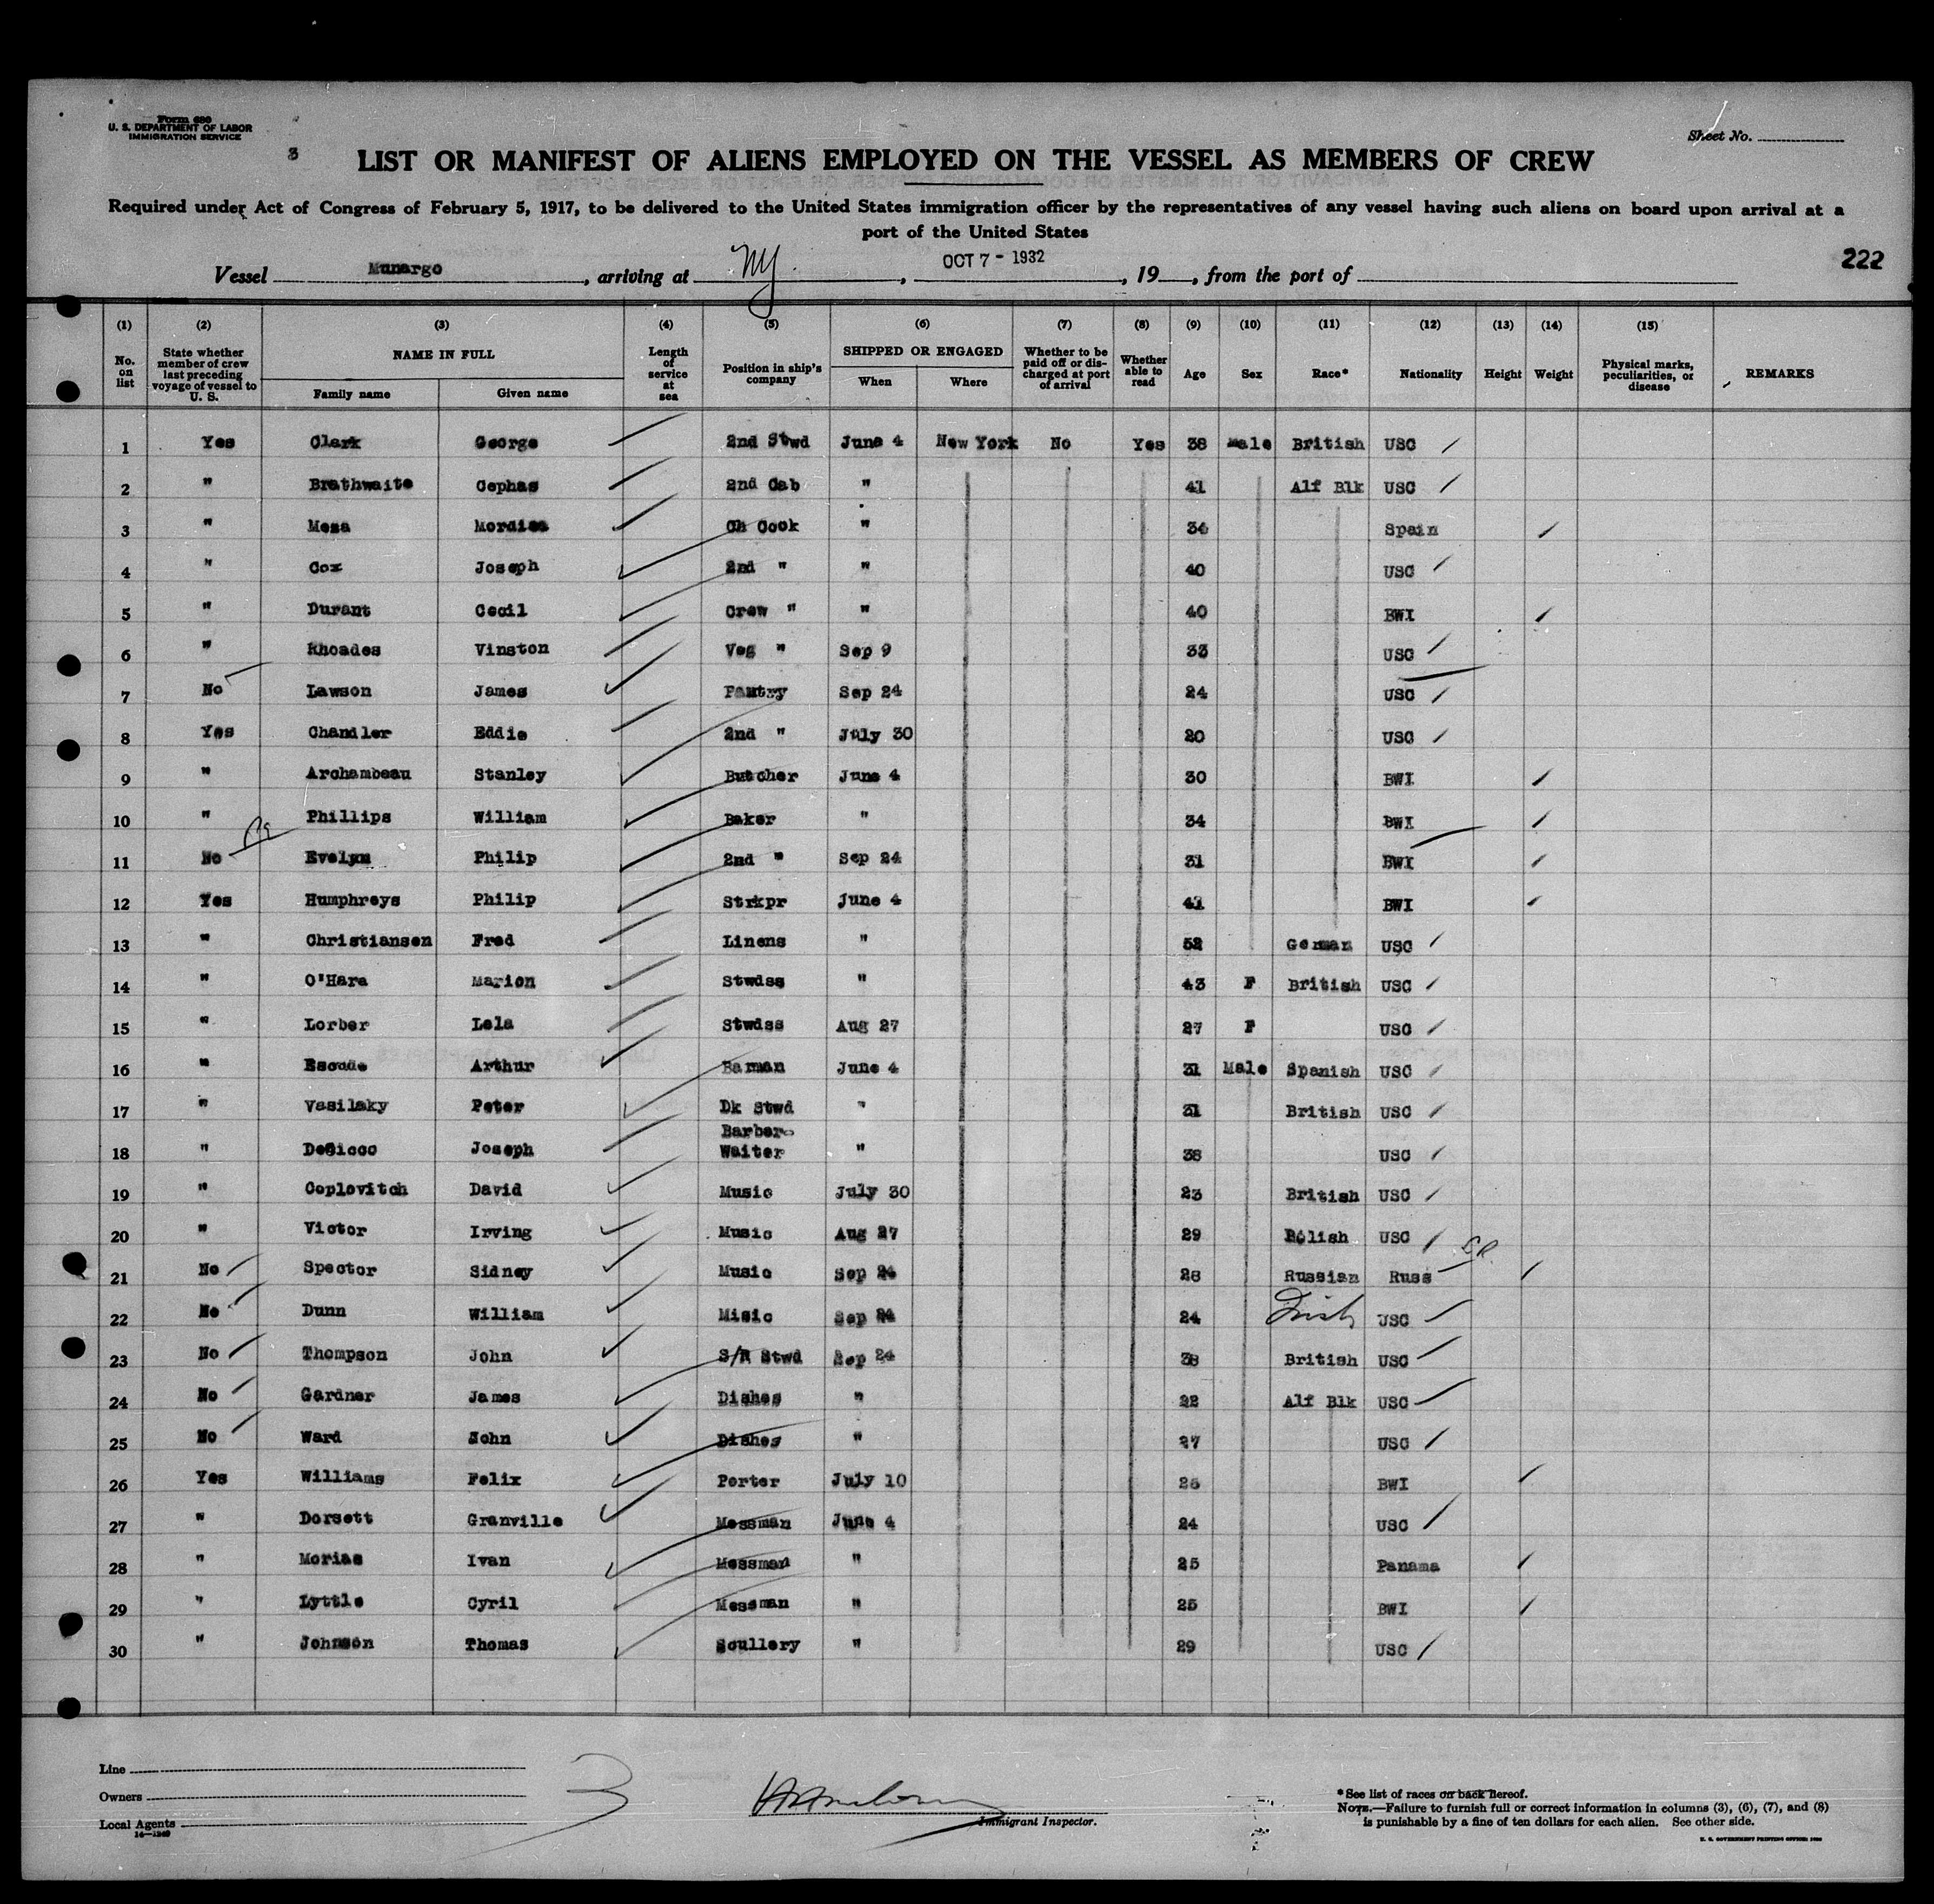 Form 680
U. S. DEPARTMENT OF LABOR
IMMIGRATION SERVICE
3
Sheet No.
LIST OR MANIFEST OF ALIENS EMPLOYED ON THE VESSEL AS MEMBERS OF CREW
Required under Act of Congress of February 5, 1917, to be delivered to the United States immigration officer by the representatives of any vessel having such aliens on board upon arrival at a
port of the United States
222
Vessel Munargo, arriving at NY., OCT 7 - 1932, 19, from the port of
(1) (2) (3) (4) (5) (6) (7) (8) (9) (10) (11) (12) (13) (14) (15)
No. on list State whether member of crew last preceding voyage of vessel to U. S. NAME IN FULL Family name Given name Length of service at sea Position in ship's company SHIPPED OR ENGAGED When Where Whether to be paid off or discharged at port of arrival Whether able to read Age Sex Race* Nationality Height Weight Physical marks, peculiarities, or disease REMARKS
1 Yes Clark George 2nd Stwd June 4 New York No Yes 38 Male British USC
2 " Brathwaite Cephas 2nd Cab " 41 Alf Blk USC
3 " Mesa Ch Cook " 34 Spain
4 " Cox Joseph 2nd " " 40 USC
5 " Durant Cecil Crew " " 40 BWI
6 " Rhoades Vinston Veg " Sep 9 33 USC
7 No Lawson James Pantry Sep 24 24 USC
8 Yes Chandler Eddie 2nd " July 30 20 USC
9 " Archambeau Stanley Butcher June 4 30 BWI
10 " Phillips William Baker " 34 BWI
11 No Evelyn Philip 2nd " Sep 24 31 BWI
12 Yes Humphreys Philip Strkpr June 4 41 BWI
13 " Christiansen Fred Linens " 52 German USC
14 " O'Hara Marion Stwdss " 43 F British USC
15 " Lorber Lela Stwdss Aug 27 27 F USC
16 " Escude Arthur Barman June 4 31 Male Spanish USC
17 " Vasilaky Peter Dk Stwd " 31 British USC
18 " DeSicco Joseph Barber- Waiter " 38 USC
19 " Coplovitch David Music July 30 23 British USC
20 " Victor Irving Music Aug 27 29 Polish USC
21 No Spector Sidney Music Sep 24 28 Russian Russ
22 No Dunn William Misic Sep 24 24 Irish USC
23 No Thompson John S/R Stwd Sep 24 38 British USC
24 No Gardner James Dishes " 22 Alf Blk USC
25 No Ward John Dishes " 27 USC
26 Yes Williams Felix Porter July 10 BWI
27 " Dorsett Granville Messman June 4 24 USC
28 " Morias Ivan Messman " 25 Panama
29 " Lyttle Cyril Messman " 25 BWI
30 " Johnson Thomas Scullery " 29 USC
Line
Owners
Local Agents
3
Immigrant Inspector.
* See list of races on back hereof.
NOTE.—Failure to furnish full or correct information in columns (3), (6), (7), and (8)
is punishable by a fine of ten dollars for each alien. See other side.